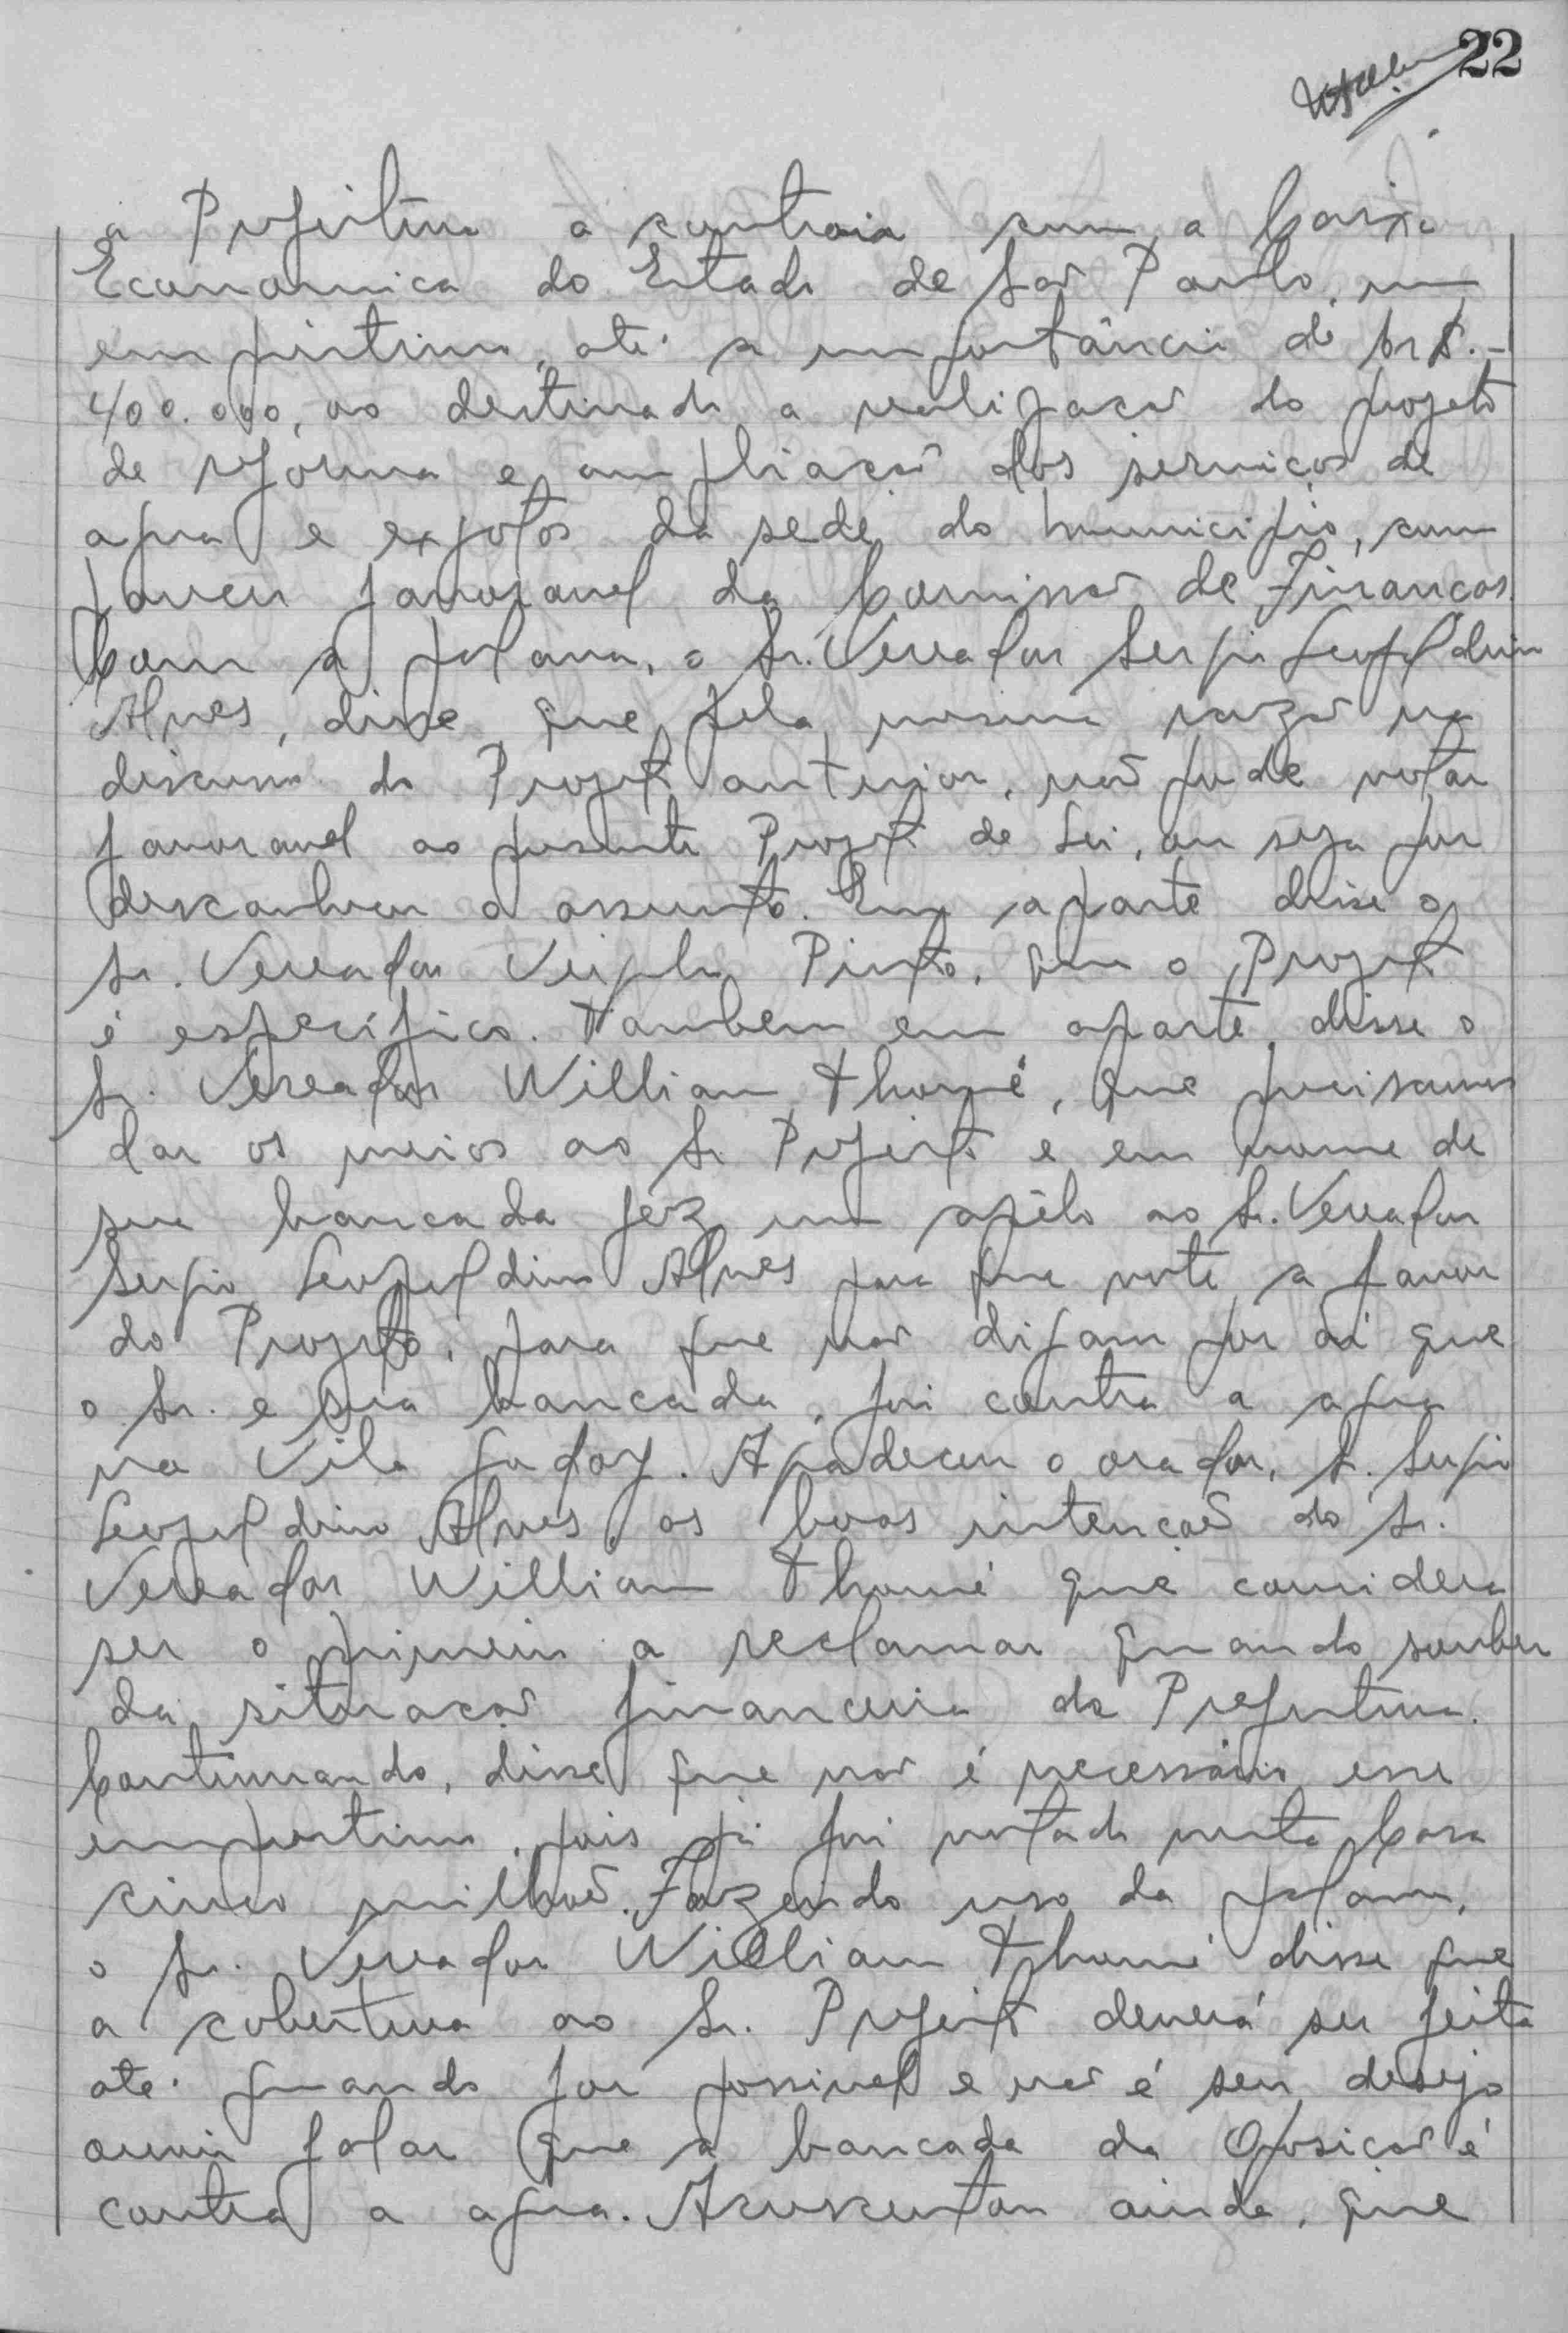 22
a Prefeitura a contrair com a Caixa
Economica do Estado de São Paulo, um
emprestimo, até a importância de Cr$.-
400.000,00 destinado a realização do projeto
de reforma e ampliação dos serviços de
agua e exgotos da sede do municipio, com
parecer favoravel da Comissão de Finanças.
Com a palavra, o Sr. Vereador Sergio Leopoldino
Alves, disse que pela mesma razão na
discussão do Projeto anterior, não pode votar
favoravel ao presente Projeto de Lei, ou seja por
desconhecer o assunto. Em aparte disse o
Sr. Vereador Virgilio Pinto, que o Projeto
é específico. Tambem em aparte, disse o
Sr. Vereador William Thomé, que precisamos
dar os meios ao Sr. Prefeito e em nome de
sua bancada fez um apêlo ao Sr. Vereador
Sergio Leopoldino Alves para que vote a favor
do Projeto, para que não digam por aí que
o Sr. e sua bancada, foi contra a agua
na Vila Godoy. Agradeceu o orador, Sr. Sergio
Leopoldino Alves, as boas intenções do Sr.
Vereador William Thomé que considera
ser o primeiro a reclamar quando souber
da situação financeira da Prefeitura.
Continuando, disse que não é necessário esse
emprestimo, pois já foi votado nesta Casa
cinco milhões. Fazendo uso da palavra,
o Sr. Vereador William Thomé disse que
a cobertura ao Sr. Prefeito deverá ser feita
até quando for possivel e não é seu desejo
ouvir falar que a bancada da Oposição é
contra a agua. Acrescentou ainda, que